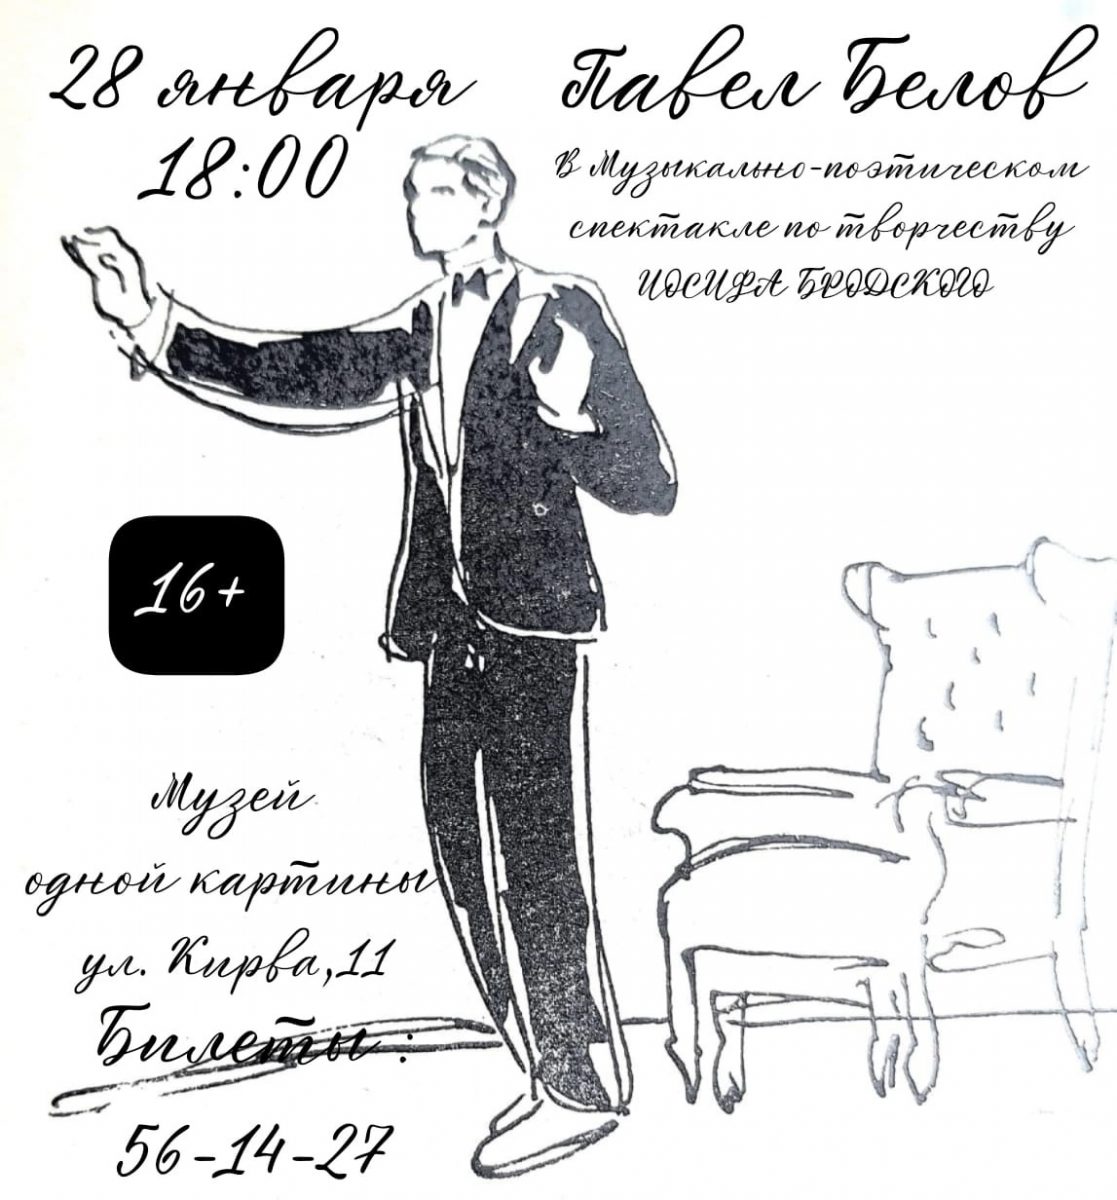 28 января
18:00
Павел Белов
В Музыкально-поэтическом
спектакле по творчеству
ИОСИФА БРОДСКОГО
16+
Музей
одной картины
ул. Кирва,11
Билеты :
56-14-27